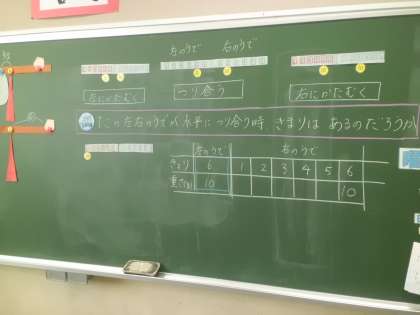 左のうで 右のうで
左にかたむく つり合う 右にかたむく
てこの左右のうでが水平につり合う時、きまりは あるのだろうか
左のうで 右のうで
きょり 6 1 2 3 4 5 6
重さ(g) 10 10